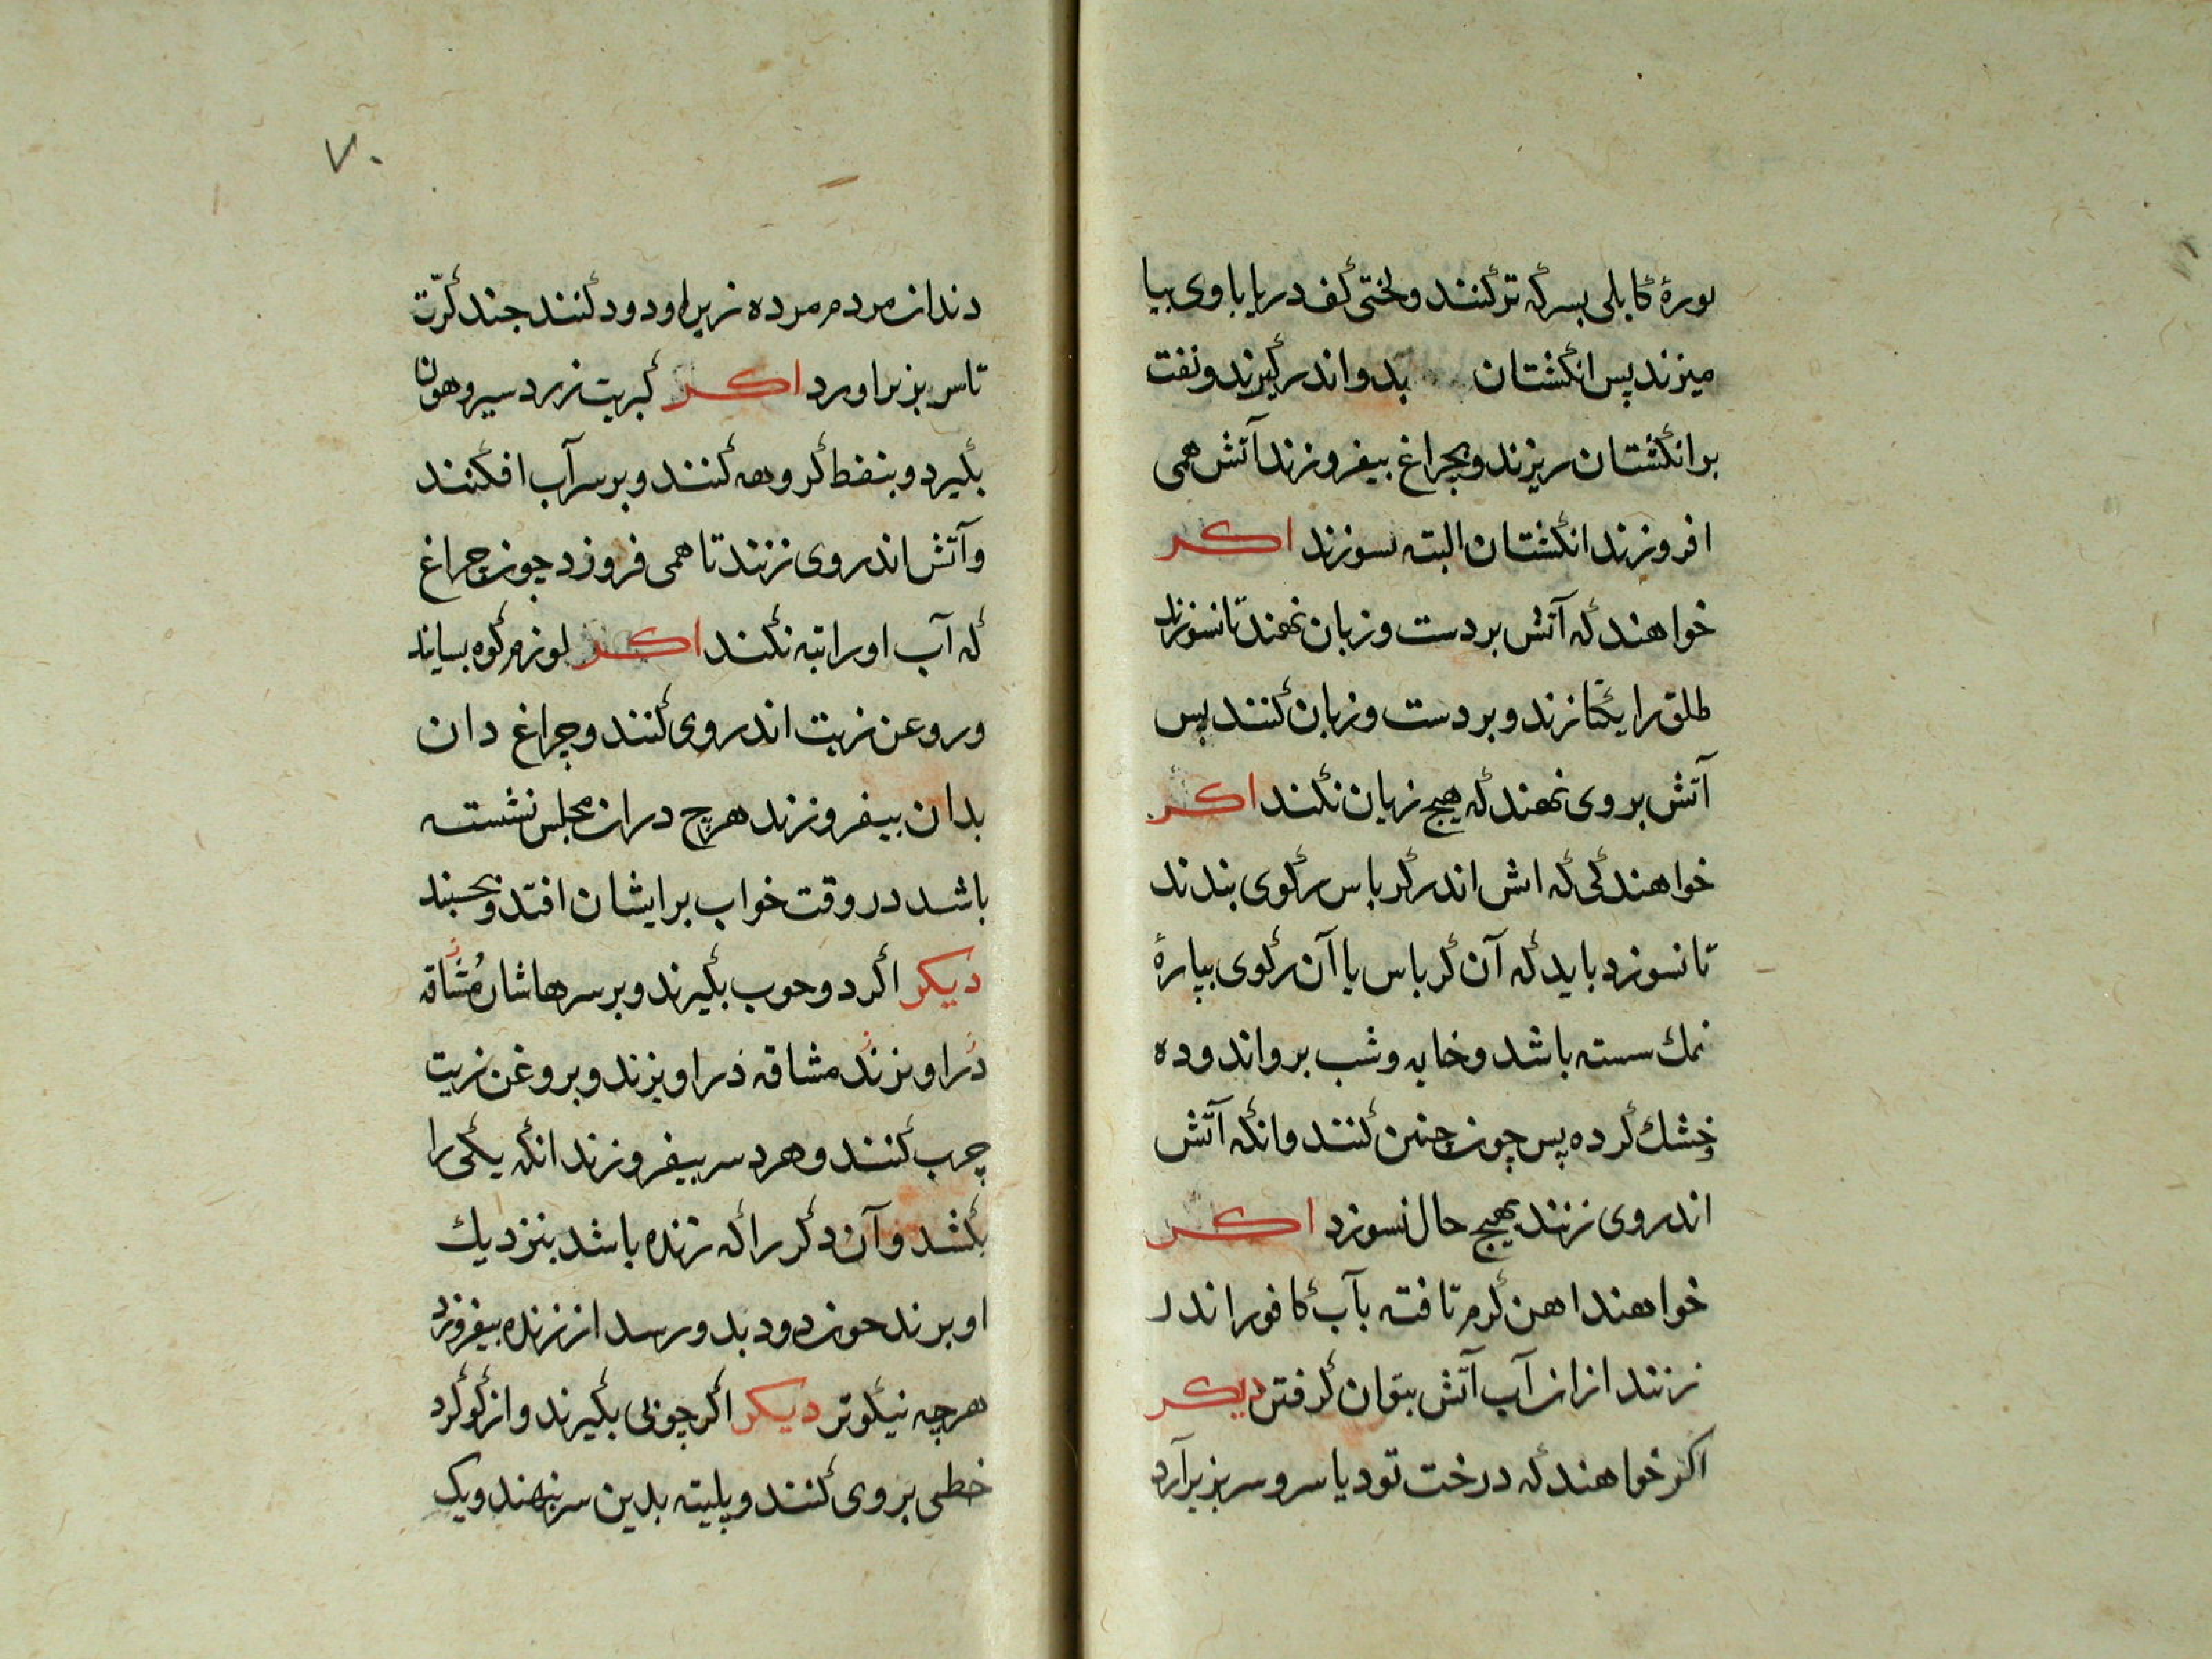 بورهٔ کابلی بسرکه ترکنند ولختی کف دریا باوی بیا
میزند پس انکشتان بدو اندر کیرند ونفت
بر انکشتان ریزند وبچراغ بیفروزند آتش همی
افروزند انکشتان البته نسوزند اکر
خواهند که آتش بر دست وزبان نهند تا نسوزند
طلق را یکتا زند وبر دست وزبان کنند پس
آتش بروی نهند که هیچ زیان نکند اکر
خواهند کی که اتش اندر کرباس رکوی بندند
تا نسوزد باید که آن کرباس یا آن رکوی بپارهٔ
نمك سسته باشد وخایه وشب برو اندوده
وخشك کرده پس چون چنین کنند وانکه آتش
اندروی زنند بهیچ حال نسوزد اکر
خواهند اهن کرم تافته بآب کافور اندر
زنند ازان آب آتش بتوان کرفتن دیکر
اکر خواهند که درخت تود یا سرو سربز برآرد
۷۰
دندان مردم مرده زیر او دود کنند جند کرّت
تا سر بزبر اورد اکر کبریت زرد سیر وهونا
بکیرد وبنفط کروهه کنند وبر سر آب افکنند
وآتش اندروی زنند تا همی فروزد چون چراغ
که آب اورا تبه نکند اکر لوزم کوه بساید
وروغن زیت اندروی کنند وچراغ دان
بدان بیفروزند هرچ دران مجلس نشسته
باشد در وقت خواب برایشان افتد وبخسبند
دیکر اکر دو جوب بکیرند وبر سرهاشان مُشاقه
در اویزند مشاقه در اویزند وبروغن زیت
چرب کنند وهر دو سر بیفروزند انکه یکی را
بکشد وآن دکر را که زنده باشد بنزدیك
او برند جون دود بدو رسد از زنده بیفروزد
هرچه نیکوتر دیکر اکر چوبی بکیرند واز کوکرد
خطی بروی کنند وپلیته بدین سر نهند ویک